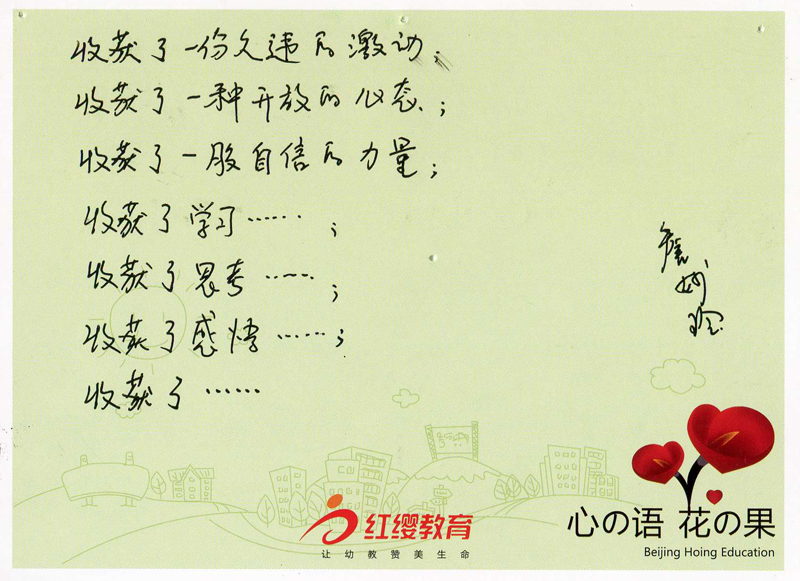 收获了一份久违的激动；
收获了一种开放的心态；
收获了一股自信的力量；
收获了学习……；
收获了思考……；
收获了感悟……；
收获了……
詹妙玲
红缨教育
让幼教赞美生命
心の语 花の果
Beijing Hoing Education